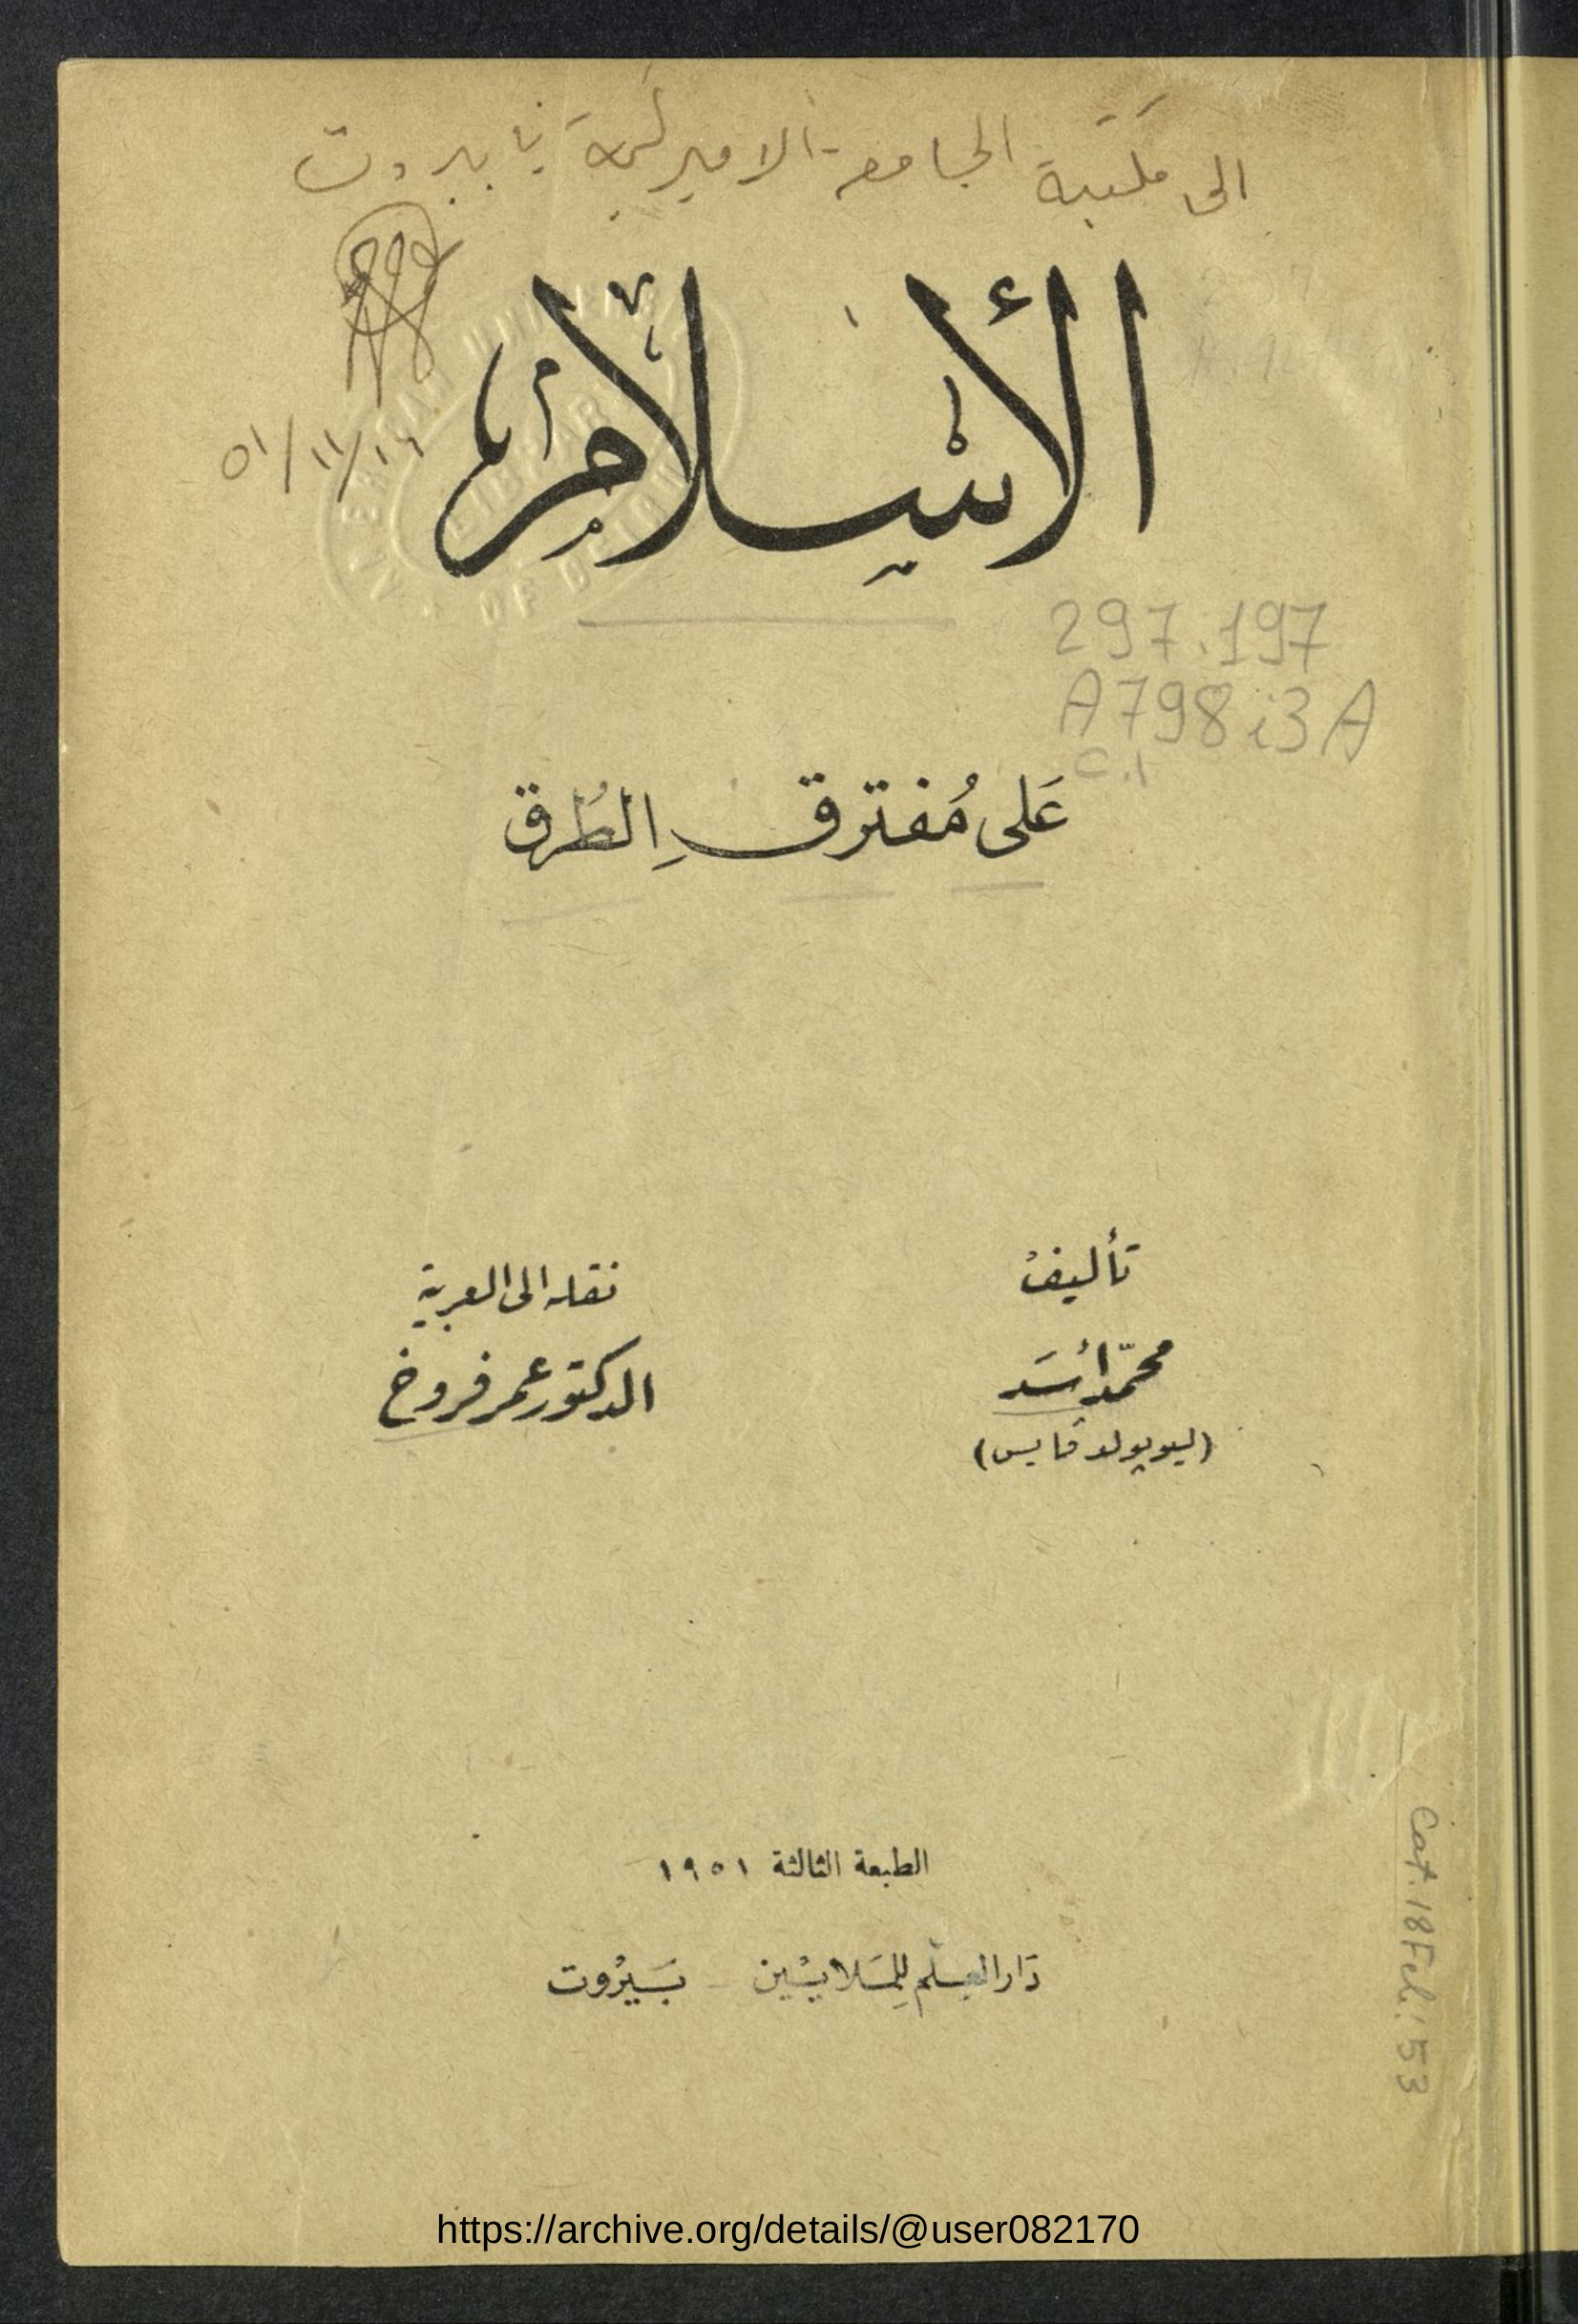 الى مكتبة الجامعة الاميركية في بيروت
الأسلام
٥١/١١/١٦
AMERICAN UNIVE
LIBRARY
OF BEIRUT
297.197
A798i3A
C.1
عَلى مُفترقِ الطُرق
تأليف
محمّد أسَد
(ليوپولد ڤايس)
نقله الى العربية
الدكتور عمر فروخ
الطبعة الثالثة ١٩٥١
دَار العِلم لِلمَلايين - بَيرُوت
Cat. 18 Feb. '53
https://archive.org/details/@user082170